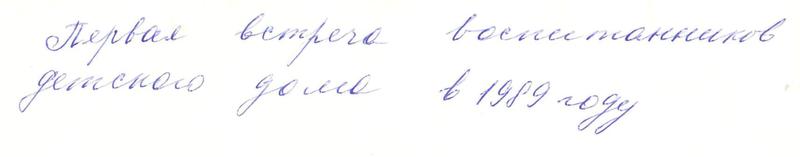 Первая встреча воспитанников
детского дома в 1989 году